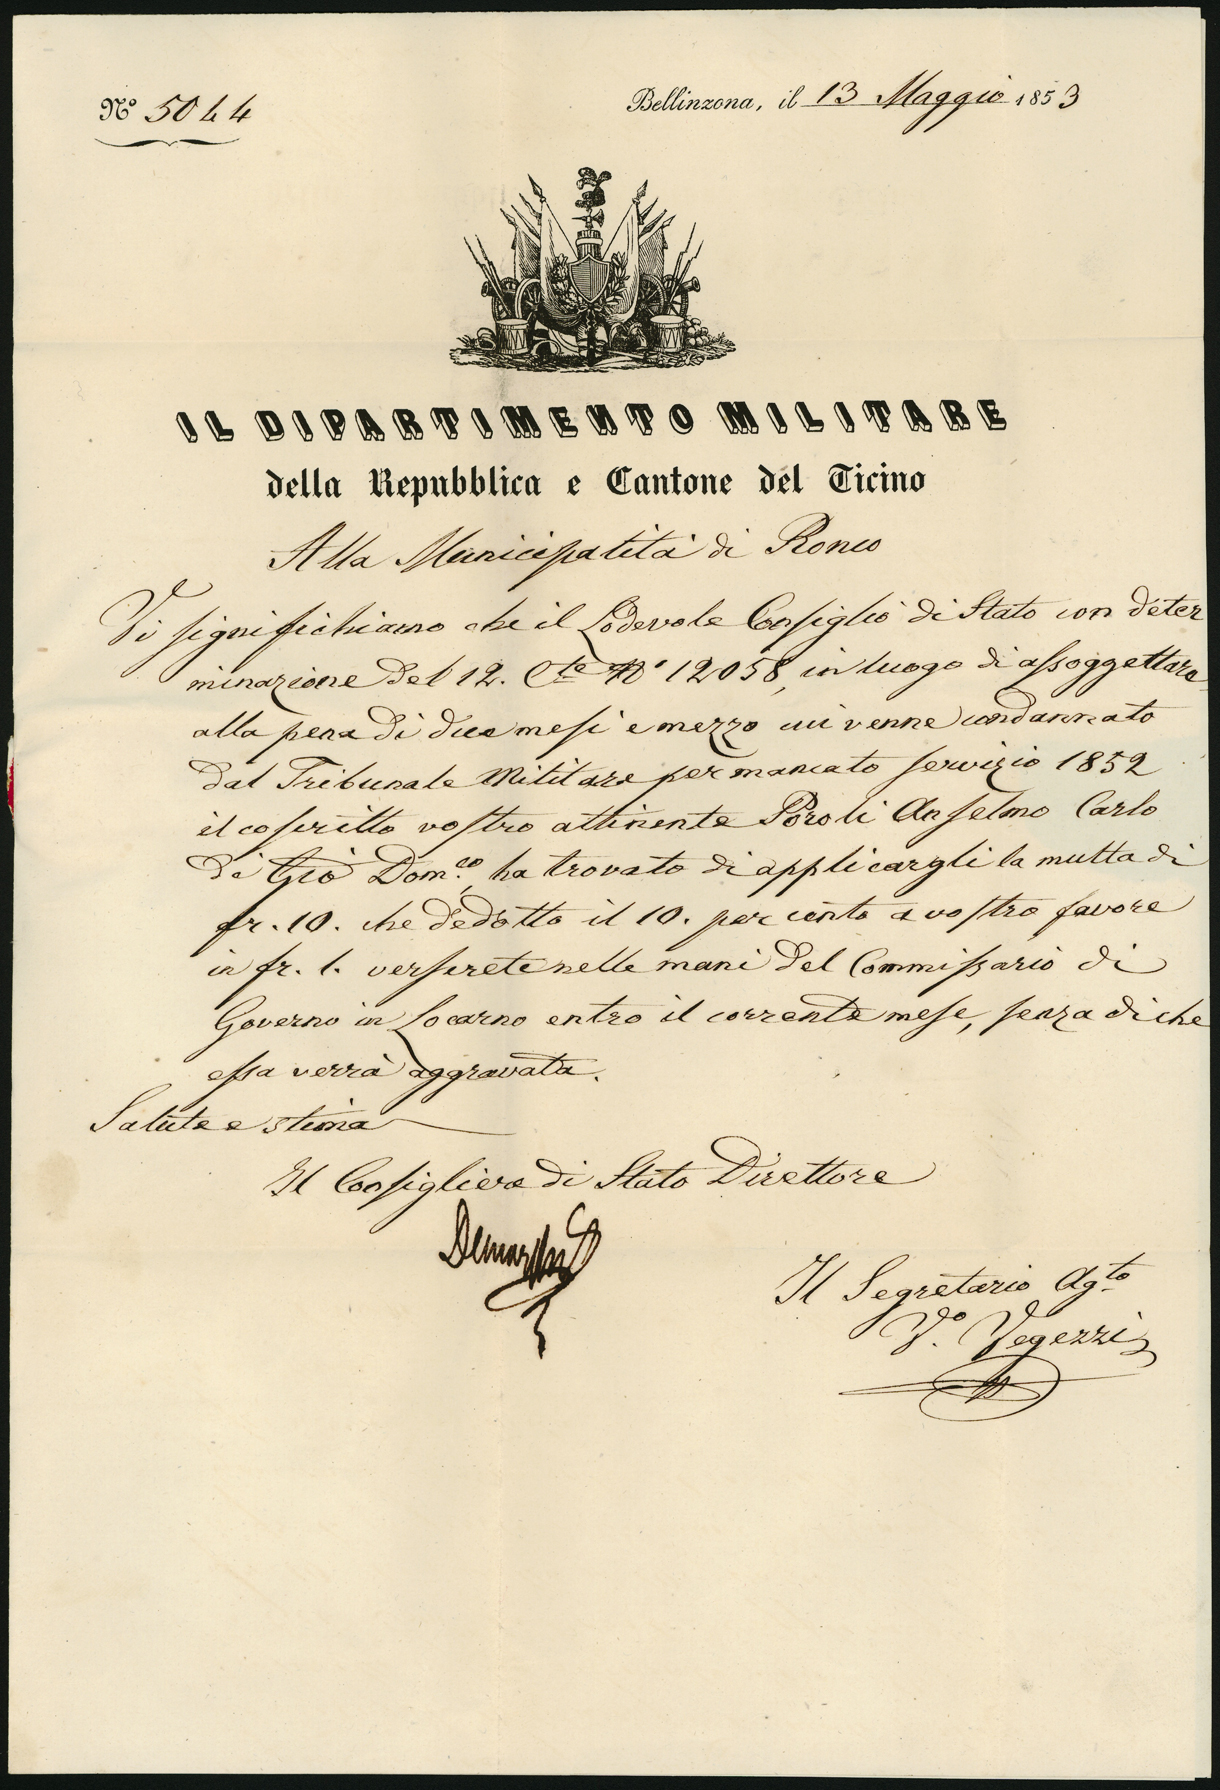 Nº 5044
Bellinzona, il 13 Maggio 1853
IL DIPARTIMENTO MILITARE
della Repubblica e Cantone del Ticino
Alla Municipalità di Ronco
Vi significhiamo che il Lodevole Consiglio di Stato con deter
minazione del 12. Cte Nº 12058, in luogo di assoggettare
alla pena di due mesi e mezzo cui venne condannato
dal Tribunale Militare per mancato servizio 1852
il coscritto vostro attinente Poroli Anselmo Carlo
di Gio Dom.co, ha trovato di applicargli la multa di
fr. 10. che dedotto il 10. per cento a vostro favore
in fr. 1. verserete nelle mani del Commissario di
Governo in Locarno entro il corrente mese, senza di che
essa verrà aggravata.
Salute e stima
Il Consigliere di Stato Direttore
Il Segretario Agto
Vº. Vegezzi